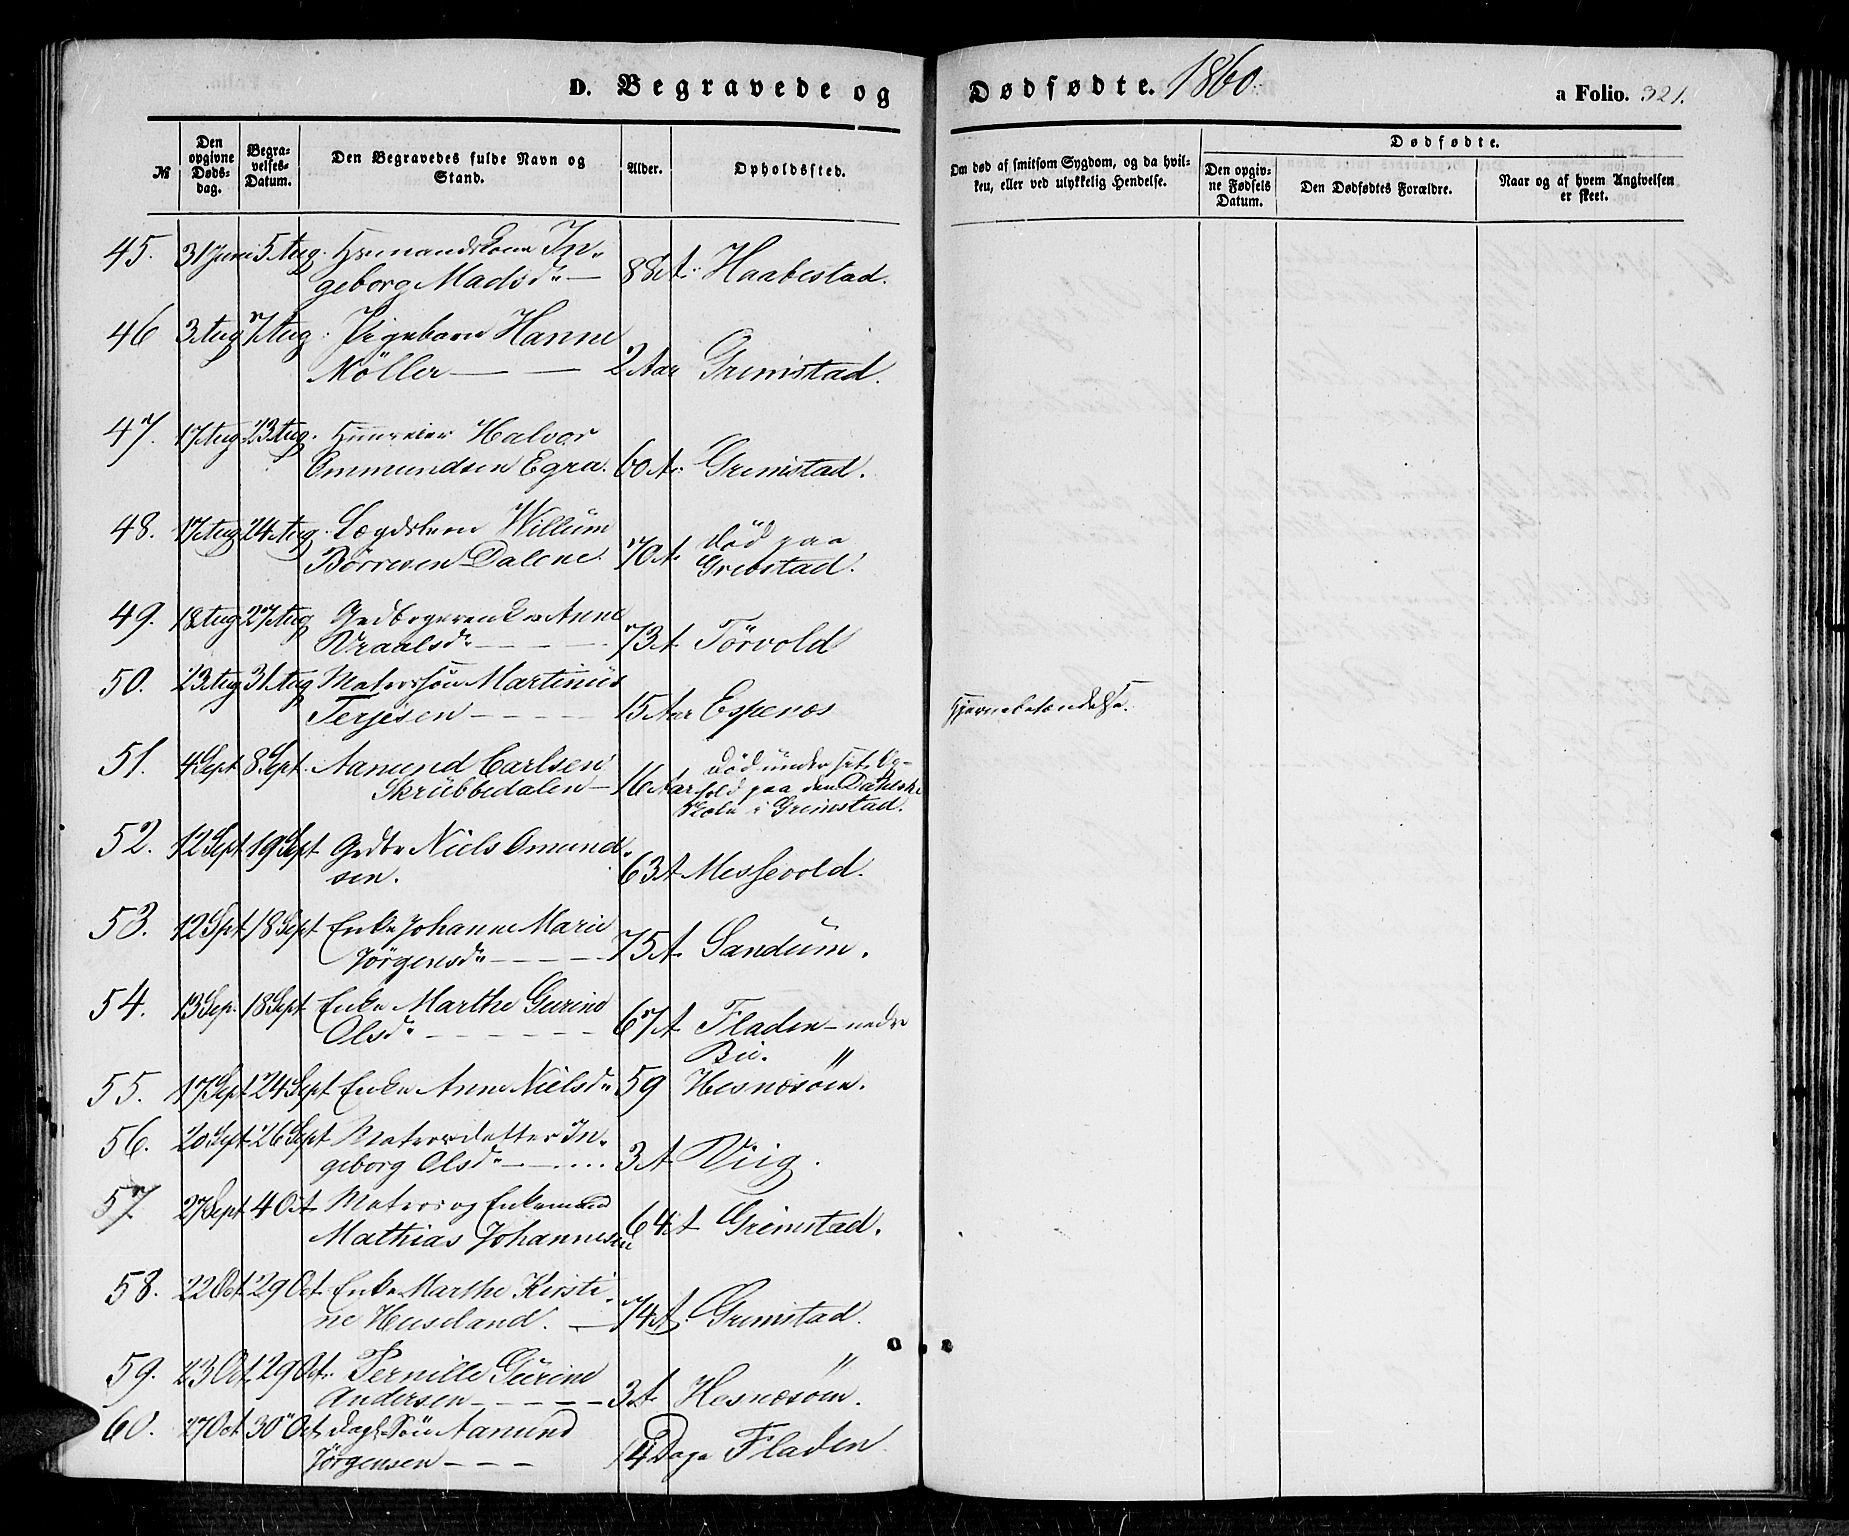 D. Begravede og Dødfødte. 1860.
a Folio. 321.
№
Den opgivne Døds-dag.
Begra-velses-Datum.
Den Begravedes fulde Navn og Stand.
Alder.
Opholdssted.
Om død af smitsom Sygdom, og da hvil-ken, eller ved ulykkelig Hendelse.
Dødfødte.
Den opgiv-ne Fødsels Datum.
Den Dødfødtes Forældre.
Naar og af hvem Angivelsen er skeet.
45. 31 Juni 5 Aug. In-
geborg Madsd. — 88 A. Haabestad.
46 3 Aug 7 Aug. Pigebarn Hanne
Möller — — 2 Aar Grimstad.
47. 17 Aug. 23 Aug. Huuseier Halvor
Ommundsen Egra. 60 A. Grimstad.
48. 17 Aug 24 Aug. Lægdslem Willum
Börresen Dalene. 70 A. död paa
Grebstad.
49. 18 Aug 27 Aug Anne
Vraalsd. - - - 73 A Törvold
50. 23 Aug 31 Aug Matrossön Martinus
Terjesen - - - 15 Aar Espenæs Hjernebetændelse.
51. 4 Sept 8 Sept. Aamund Carlsen
Skrubbedalen - 16 Aar död under sit Op-
hold paa den Dahlske
Skole i Grimstad.
52. 12 Sept 19 Sept Gdbr Niels Omund-
sen. 63 A Messevold.
53. 12 Spt 18 Sept Enke Johanne Marie
Jörgensd. - - - 75 A. Sandum.
54. 13 Sep. 18 Sept Enke Marthe Gurine
Olsd. - - - 67 A Fladen - nedre
Bie.
55. 17 Sept 24 Sept Enke Anne Nielsd. 59 " Hesnæsöen.
56. 20 Sept 26 Sept Matrosdatter In-
geborg Olsd. - - - 3 A Viig.
57. 27 Sept 4 Oct Matros og Enkemand
Mathias Johannesen 64 A Grimstad.
58. 22 Oct. 29 Oct. Enke Marthe Kirsti-
ne Heseland. - 74 A. Grimstad.
59. 23 Oct. 29 Oct. Pernille Gurine
Andersen - - - 3 A. Hesnæsöen.
60. 27 Oct 30 Oct. Sön Aamund
Jörgensen - - - 14 Dage Fladen